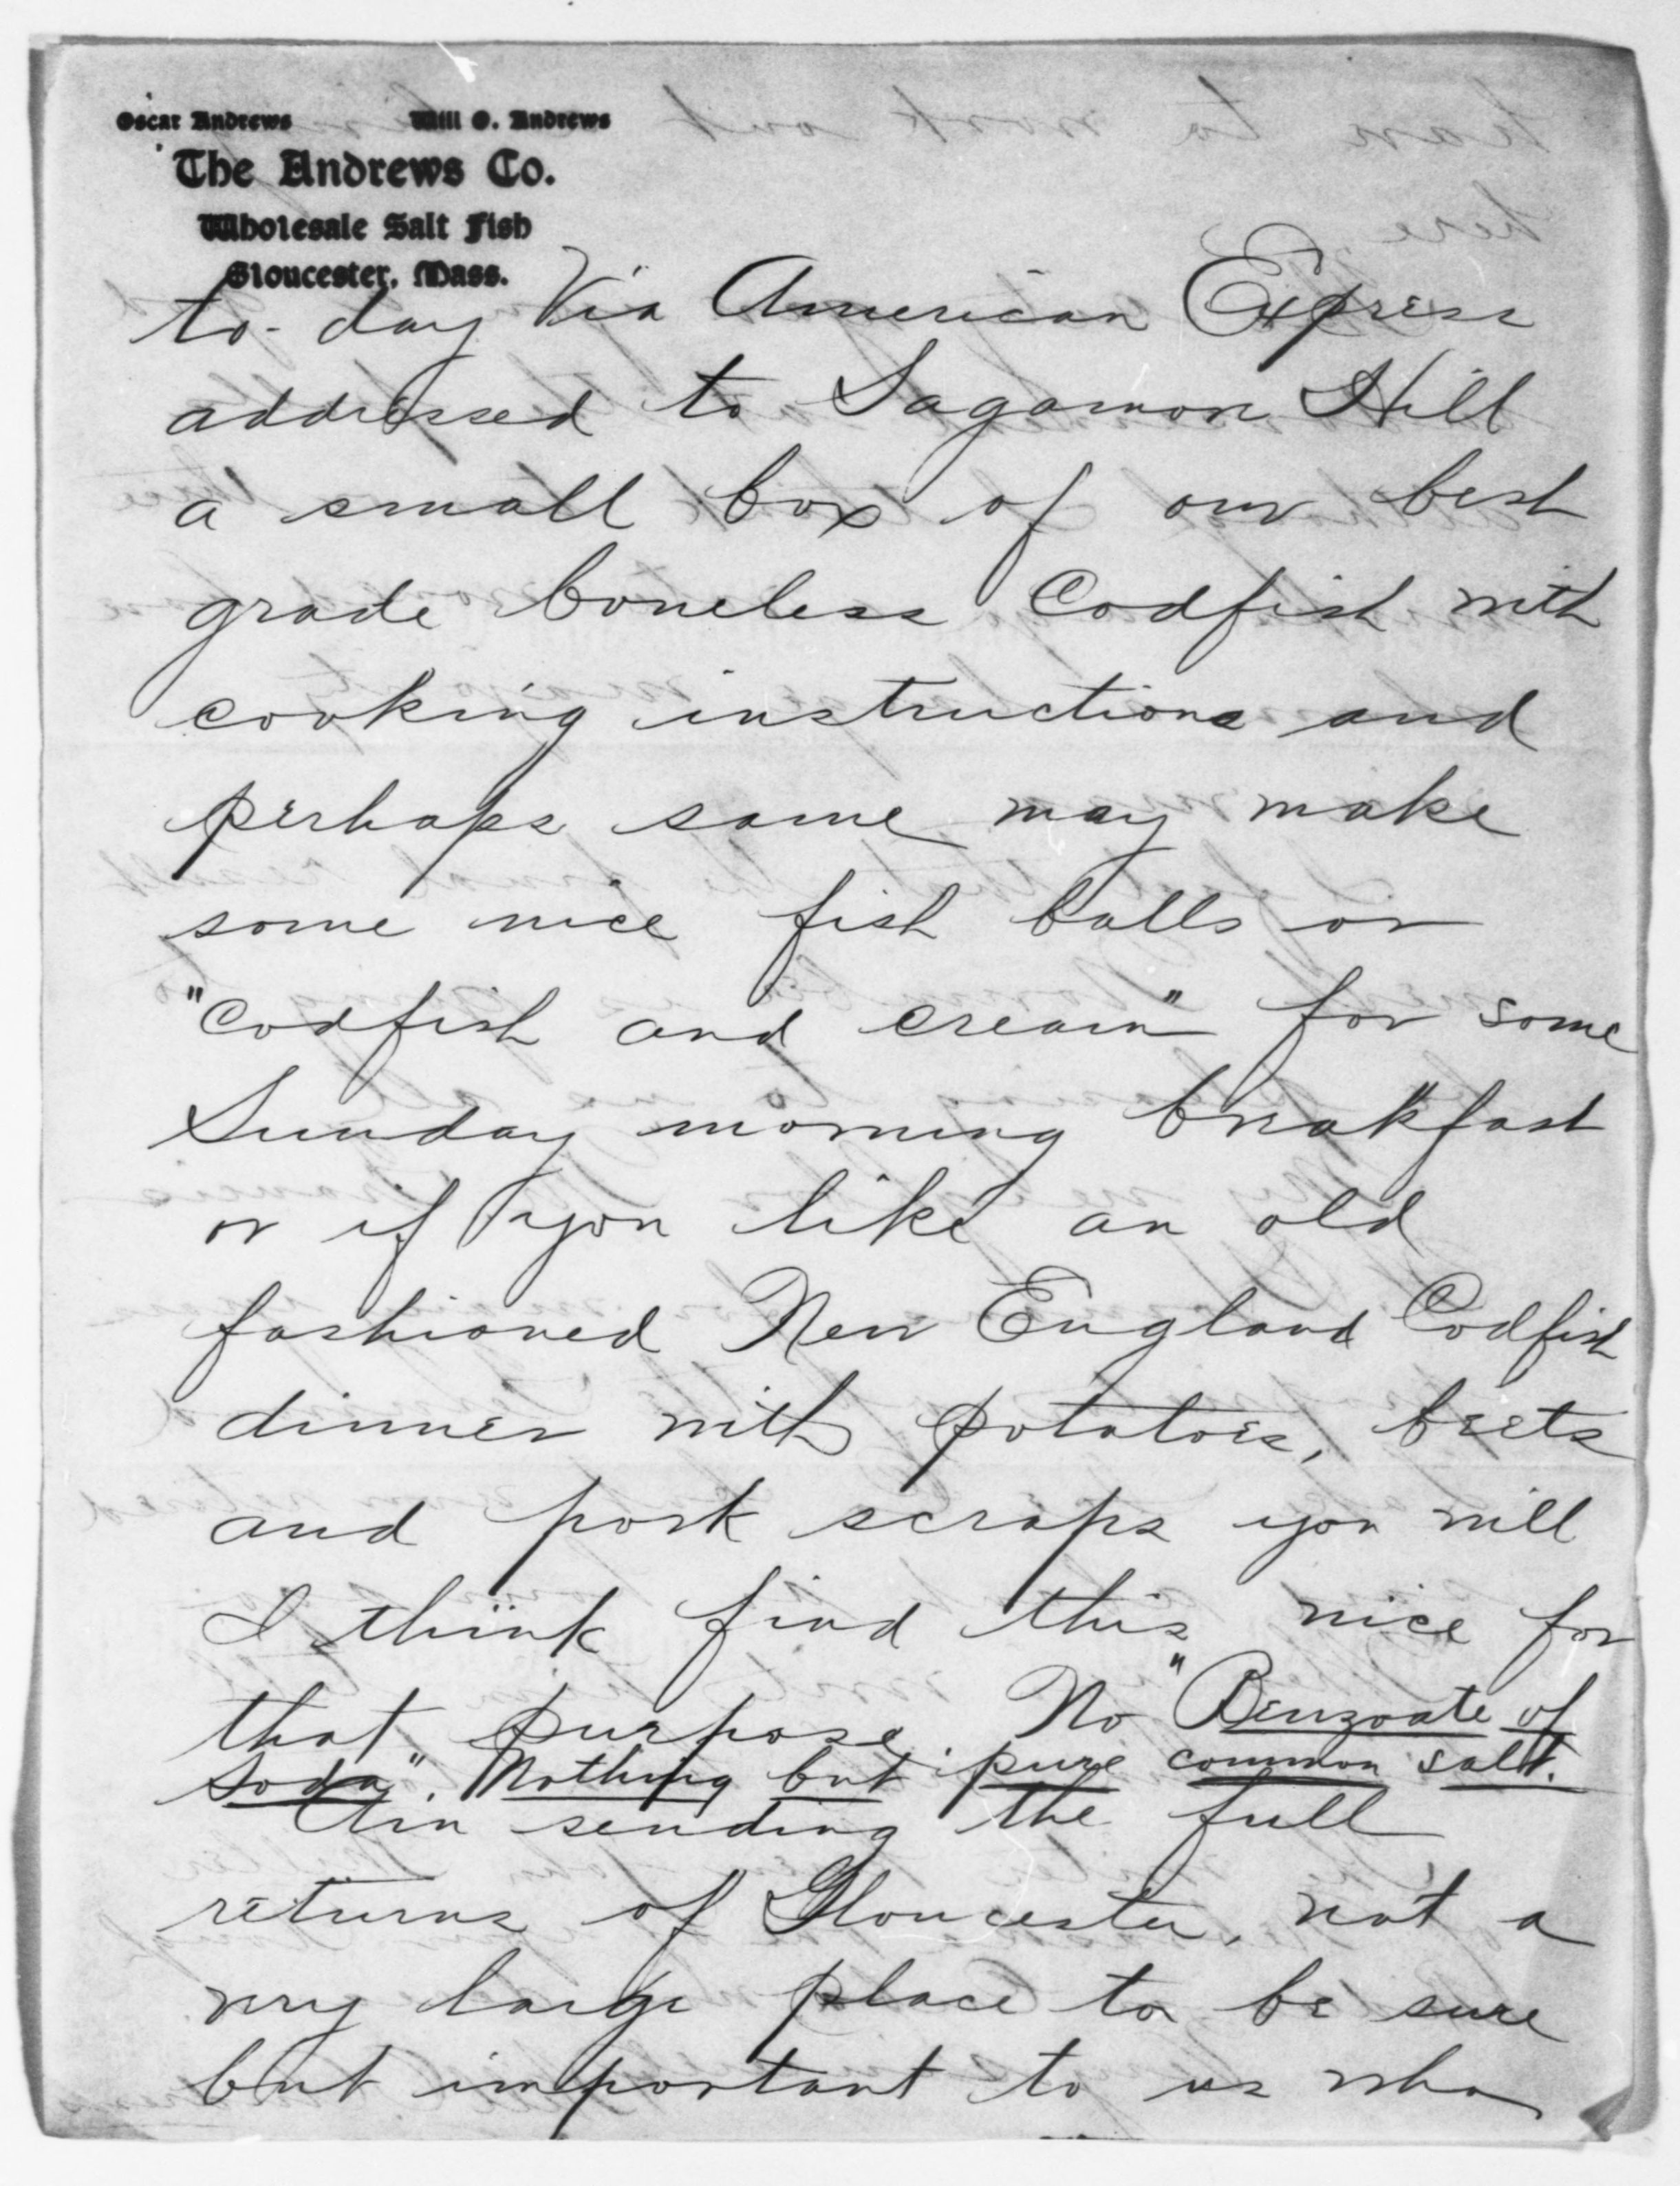 Oscar Andrews Will O. Andrews
The Andrews Co.
Wholesale Salt Fish
Gloucester, Mass.
to-day Via American Express
addressed to Sagamore Hill
a small box of our best
grade boneless Codfish with
cooking instructions and
perhaps same may make
some nice fish balls or
"Codfish and cream" for some
Sunday morning breakfast
or if you like an old
fashioned New England Codfish
dinner with potatoes, beets
and pork scraps you will
I think find this nice for
that purpose. No "Benzoate of
Soda". Nothing but pure common salt.
Am sending the full
returns of Gloucester, not a
very large place to be sure
but important to us who